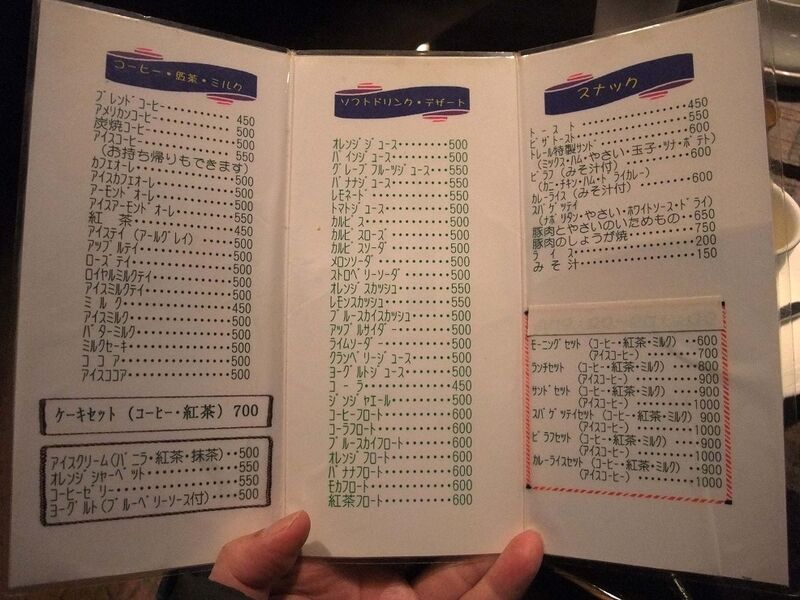 コーヒー・紅茶・ミルク
ブレンドコーヒー・・・・・・・・450
アメリカンコーヒー・・・・・・・・500
炭焼コーヒー・・・・・・・・500
アイスコーヒー・・・・・・・・550
(お持ち帰りもできます)
カフェオーレ・・・・・・・・500
アイスカフェオーレ・・・・・・・・500
アーモンドオーレ・・・・・・・・550
アイスアーモンドオーレ・・・・・・・・550
紅 茶・・・・・・・・450
アイステイ (アールグレイ)・・・・500
アップルテイ・・・・・・・・500
ローズテイ・・・・・・・・500
ロイヤルミルクテイ・・・・・・・・550
アイスミルクテイ・・・・・・・・550
ミ ル ク・・・・・・・・450
アイスミルク・・・・・・・・500
バターミルク・・・・・・・・500
ミルクセーキ・・・・・・・・500
コ コ ア・・・・・・・・500
アイスココア・・・・・・・・500
ケーキセット (コーヒー・紅茶) 700
アイスクリーム(バニラ・紅茶・抹茶)・・500
オレンジシャーベット・・・・・・・・550
コーヒーゼリー・・・・・・・・550
ヨーグルト(ブルーベリーソース付)・・・500
ソフトドリンク・デザート
オレンジジュース・・・・・・・・500
パインジュース・・・・・・・・500
グレープフルーツジュース・・・550
バナナジュース・・・・・・・・550
レモネード・・・・・・・・500
トマトジュース・・・・・・・・500
カルピス・・・・・・・・500
カルピスローズ・・・・・・・・500
カルピスソーダ・・・・・・・・500
メロンソーダ・・・・・・・・500
ストロベリーソーダ・・・・・・・・500
オレンジスカッシュ・・・・・・・・550
レモンスカッシュ・・・・・・・・550
ブルースカイスカッシュ・・・・・・500
アップルサイダー・・・・・・・・500
ライムソーダー・・・・・・・・500
クランベリージュース・・・・・・500
ヨーグルトジュース・・・・・・・・500
コ ー ラ・・・・・・・・450
ジンジャエール・・・・・・・・500
コーヒーフロート・・・・・・・・600
コーラフロート・・・・・・・・600
ブルースカイフロート・・・・・・600
オレンジフロート・・・・・・・・600
バナナフロート・・・・・・・・600
モカフロート・・・・・・・・600
紅茶フロート・・・・・・・・600
スナック
ト ー ス ト・・・・・・・・450
ピザトースト・・・・・・・・550
トレール特製サンド・・・・・・・・600
(ミックス・ハム・やさい・玉子・ツナ・ポテト)
ピラフ (みそ汁付)・・・・・・・・600
(カニ・チキン・ハム・ドライカレー)
カレーライス(みそ汁付)・・・・・・600
スパゲッテイ
(ナポリタン・やさい・ホワイトソース・ドライ)
豚肉とやさいのいためもの・・650
豚肉のしょうが焼・・・・・・・・750
ラ イ ス・・・・・・・・200
み そ 汁・・・・・・・・150
モーニングセット (コーヒー・紅茶・ミルク)・・600
(アイスコーヒー)・・・・700
ランチセット (コーヒー・紅茶・ミルク)・・800
(アイスコーヒー)・・・・900
サンドセット (コーヒー・紅茶・ミルク)・・900
(アイスコーヒー)・・・・1000
スパゲッテイセット (コーヒー・紅茶・ミルク)・・900
(アイスコーヒー)・・・・1000
ピラフセット (コーヒー・紅茶・ミルク)・・900
(アイスコーヒー)・・・・1000
カレーライスセット(コーヒー・紅茶・ミルク)・・900
(アイスコーヒー)・・・・1000